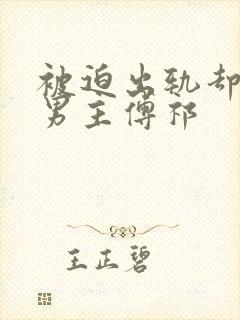 被迫出轨却
男主傅祁
王正碧